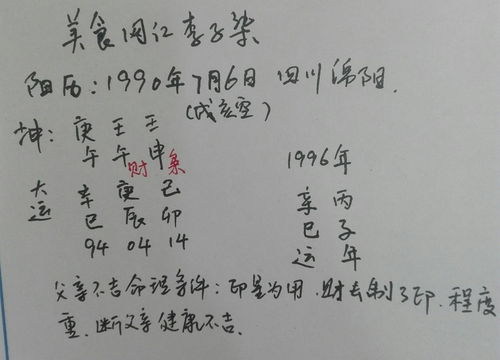 美食网红李子柒
阳历:1990年7月6日 四川绵阳.
(戌亥空)
坤: 庚 壬 壬
午 午 申
财 枭
大运 辛 庚 己
巳 辰 卯
94 04 14
1996年
辛 丙
巳 子
运 年
父亲不吉命理条件:印星为用.财去制了印.程度
重.断父亲健康不吉.